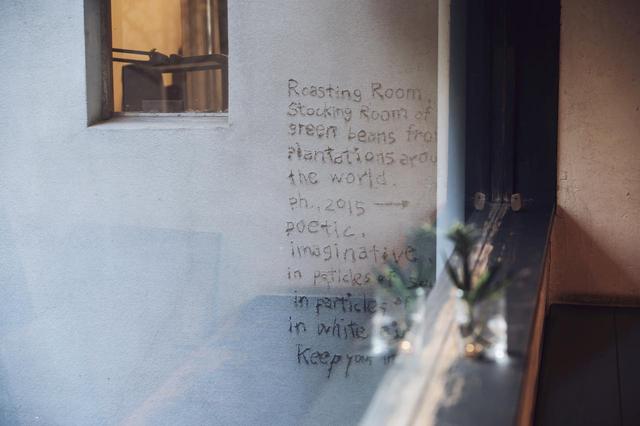 Roasting Room,
Stocking Room of
green beans from
plantations arou
the world.
ph., 2015 →
poetic,
imaginative,
in paticles of
in particles of
in white
Keep you in